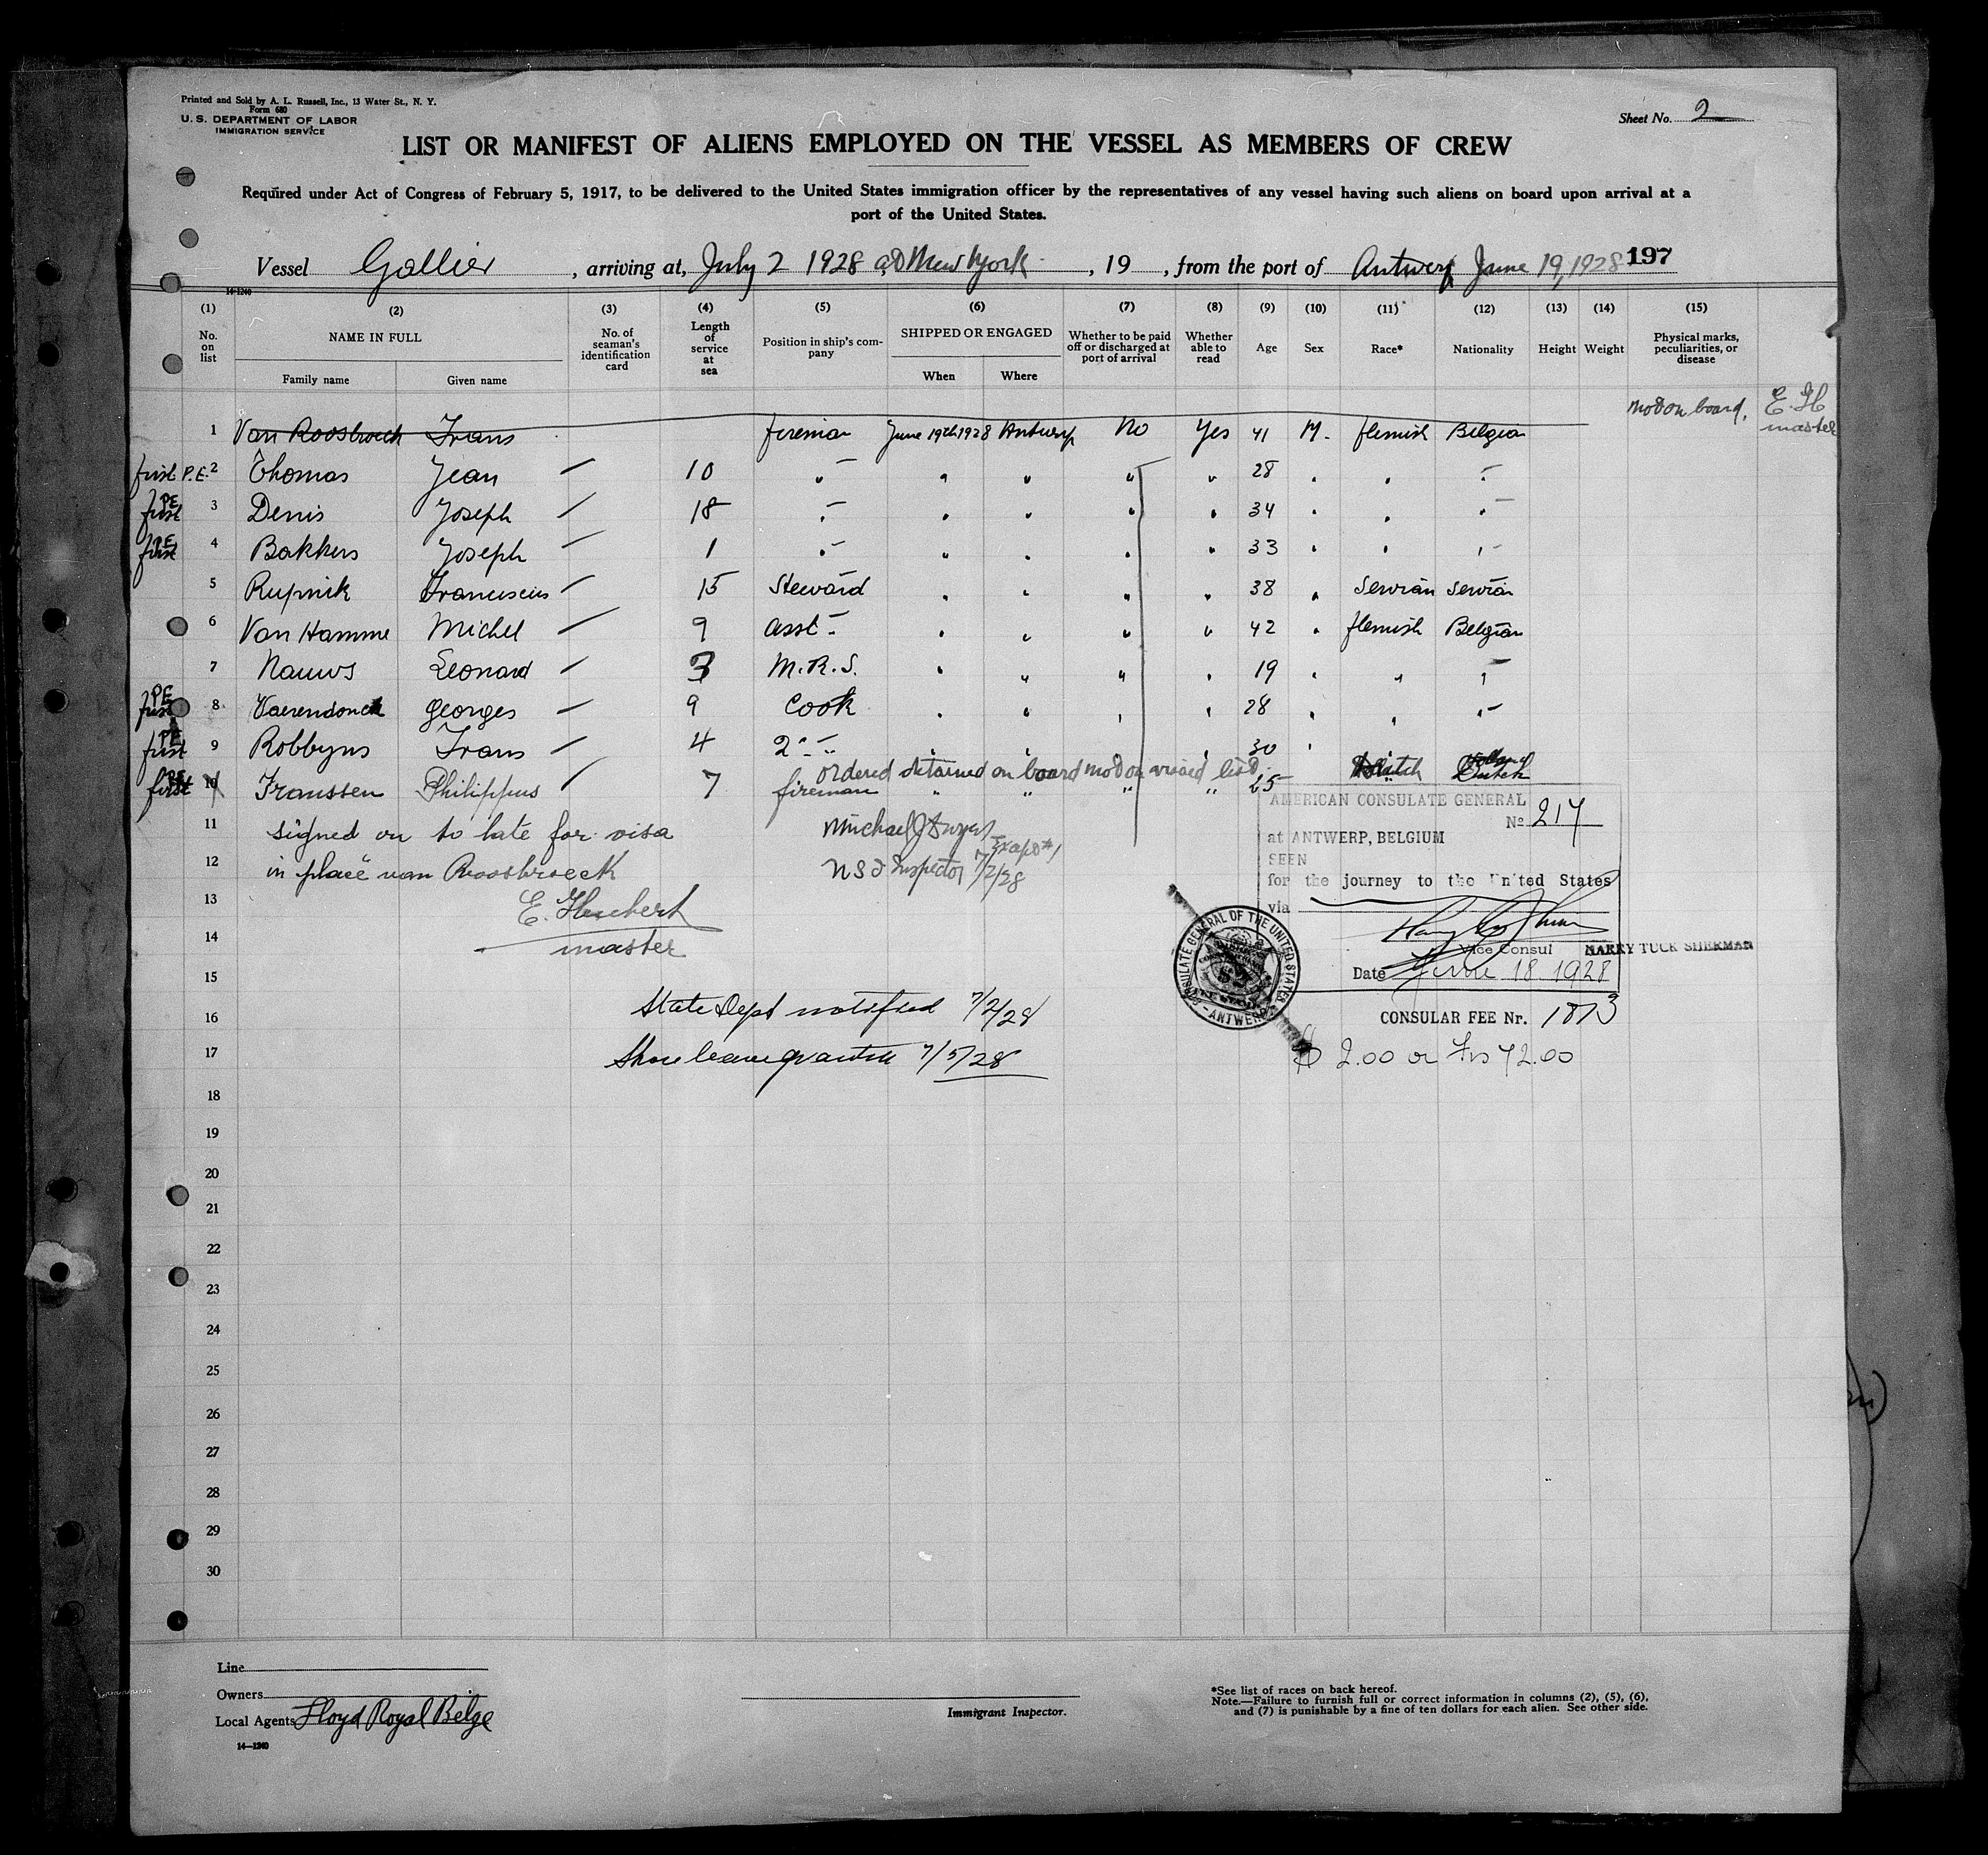 Printed and Sold by A. L. Russell, Inc., 13 Water St., N. Y.
Form 680
U. S. DEPARTMENT OF LABOR
IMMIGRATION SERVICE
Sheet No. 2
LIST OR MANIFEST OF ALIENS EMPLOYED ON THE VESSEL AS MEMBERS OF CREW
Required under Act of Congress of February 5, 1917, to be delivered to the United States immigration officer by the representatives of any vessel having such aliens on board upon arrival at a
port of the United States.
Vessel Gallier, arriving at, July 2 1928 at New York, 19 , from the port of Antwerp June 19, 1928 197
14-1240
(1) (2) (3) (4) (5) (6) (7) (8) (9) (10) (11) (12) (13) (14) (15)
No. on list NAME IN FULL Family name Given name No. of seaman's identification card Length of service at sea Position in ship's company SHIPPED OR ENGAGED When Where Whether to be paid off or discharged at port of arrival Whether able to read Age Sex Race* Nationality Height Weight Physical marks, peculiarities, or disease
not on board. E. H master
1 Van Roosbroeck Frans fireman June 19th 1928 Antwerp No Yes 41 M. flemish Belgian
first P.E. 2 Thomas Jean 10 " " " " " 28 " " "
first PE 3 Denis Joseph 18 " " " " " 34 " " "
first PE 4 Bakkers Joseph 1 " " " " " 33 " " "
5 Rupnik Franciscus 15 Steward " " " " 38 " Servian Servian
6 Van Hamme Michel 9 asst " " " " " 42 " flemish Belgian
7 Nauws Leonard 3 M.R.S. " " " " 19 " " "
first PE 8 Vaerendonck Georges 9 Cook " " " " 28 " " "
first PE 9 Robbyns Frans 4 2" " " " " 30 "
ordered detained on board not on visaed list.
first PE 10 Franssen Philippus 7 fireman " " " " 25 Dutch
11 signed on to late for visa
12 in place van Roosbroeck
Inspector 7/2/28
13 E. Heubert
14 master
15
16 State Dept notified 7/2/28
17 Shore leave granted 7/5/28
AMERICAN CONSULATE GENERAL
No 217
at ANTWERP, BELGIUM
SEEN
for the journey to the United States
via
Vice Consul HARRY TUCK SHERMAN
Date June 18 1928
CONSULATE GENERAL OF THE UNITED STATES
ANTWERP
CONSULAR FEE Nr. 1873
$ 2.00 or Frs 72.00
18
19
20
21
22
23
24
25
26
27
28
29
30
Line
Owners
Local Agents Lloyd Royal Belge
14—1240
Immigrant Inspector.
*See list of races on back hereof.
Note.—Failure to furnish full or correct information in columns (2), (5), (6),
and (7) is punishable by a fine of ten dollars for each alien. See other side.